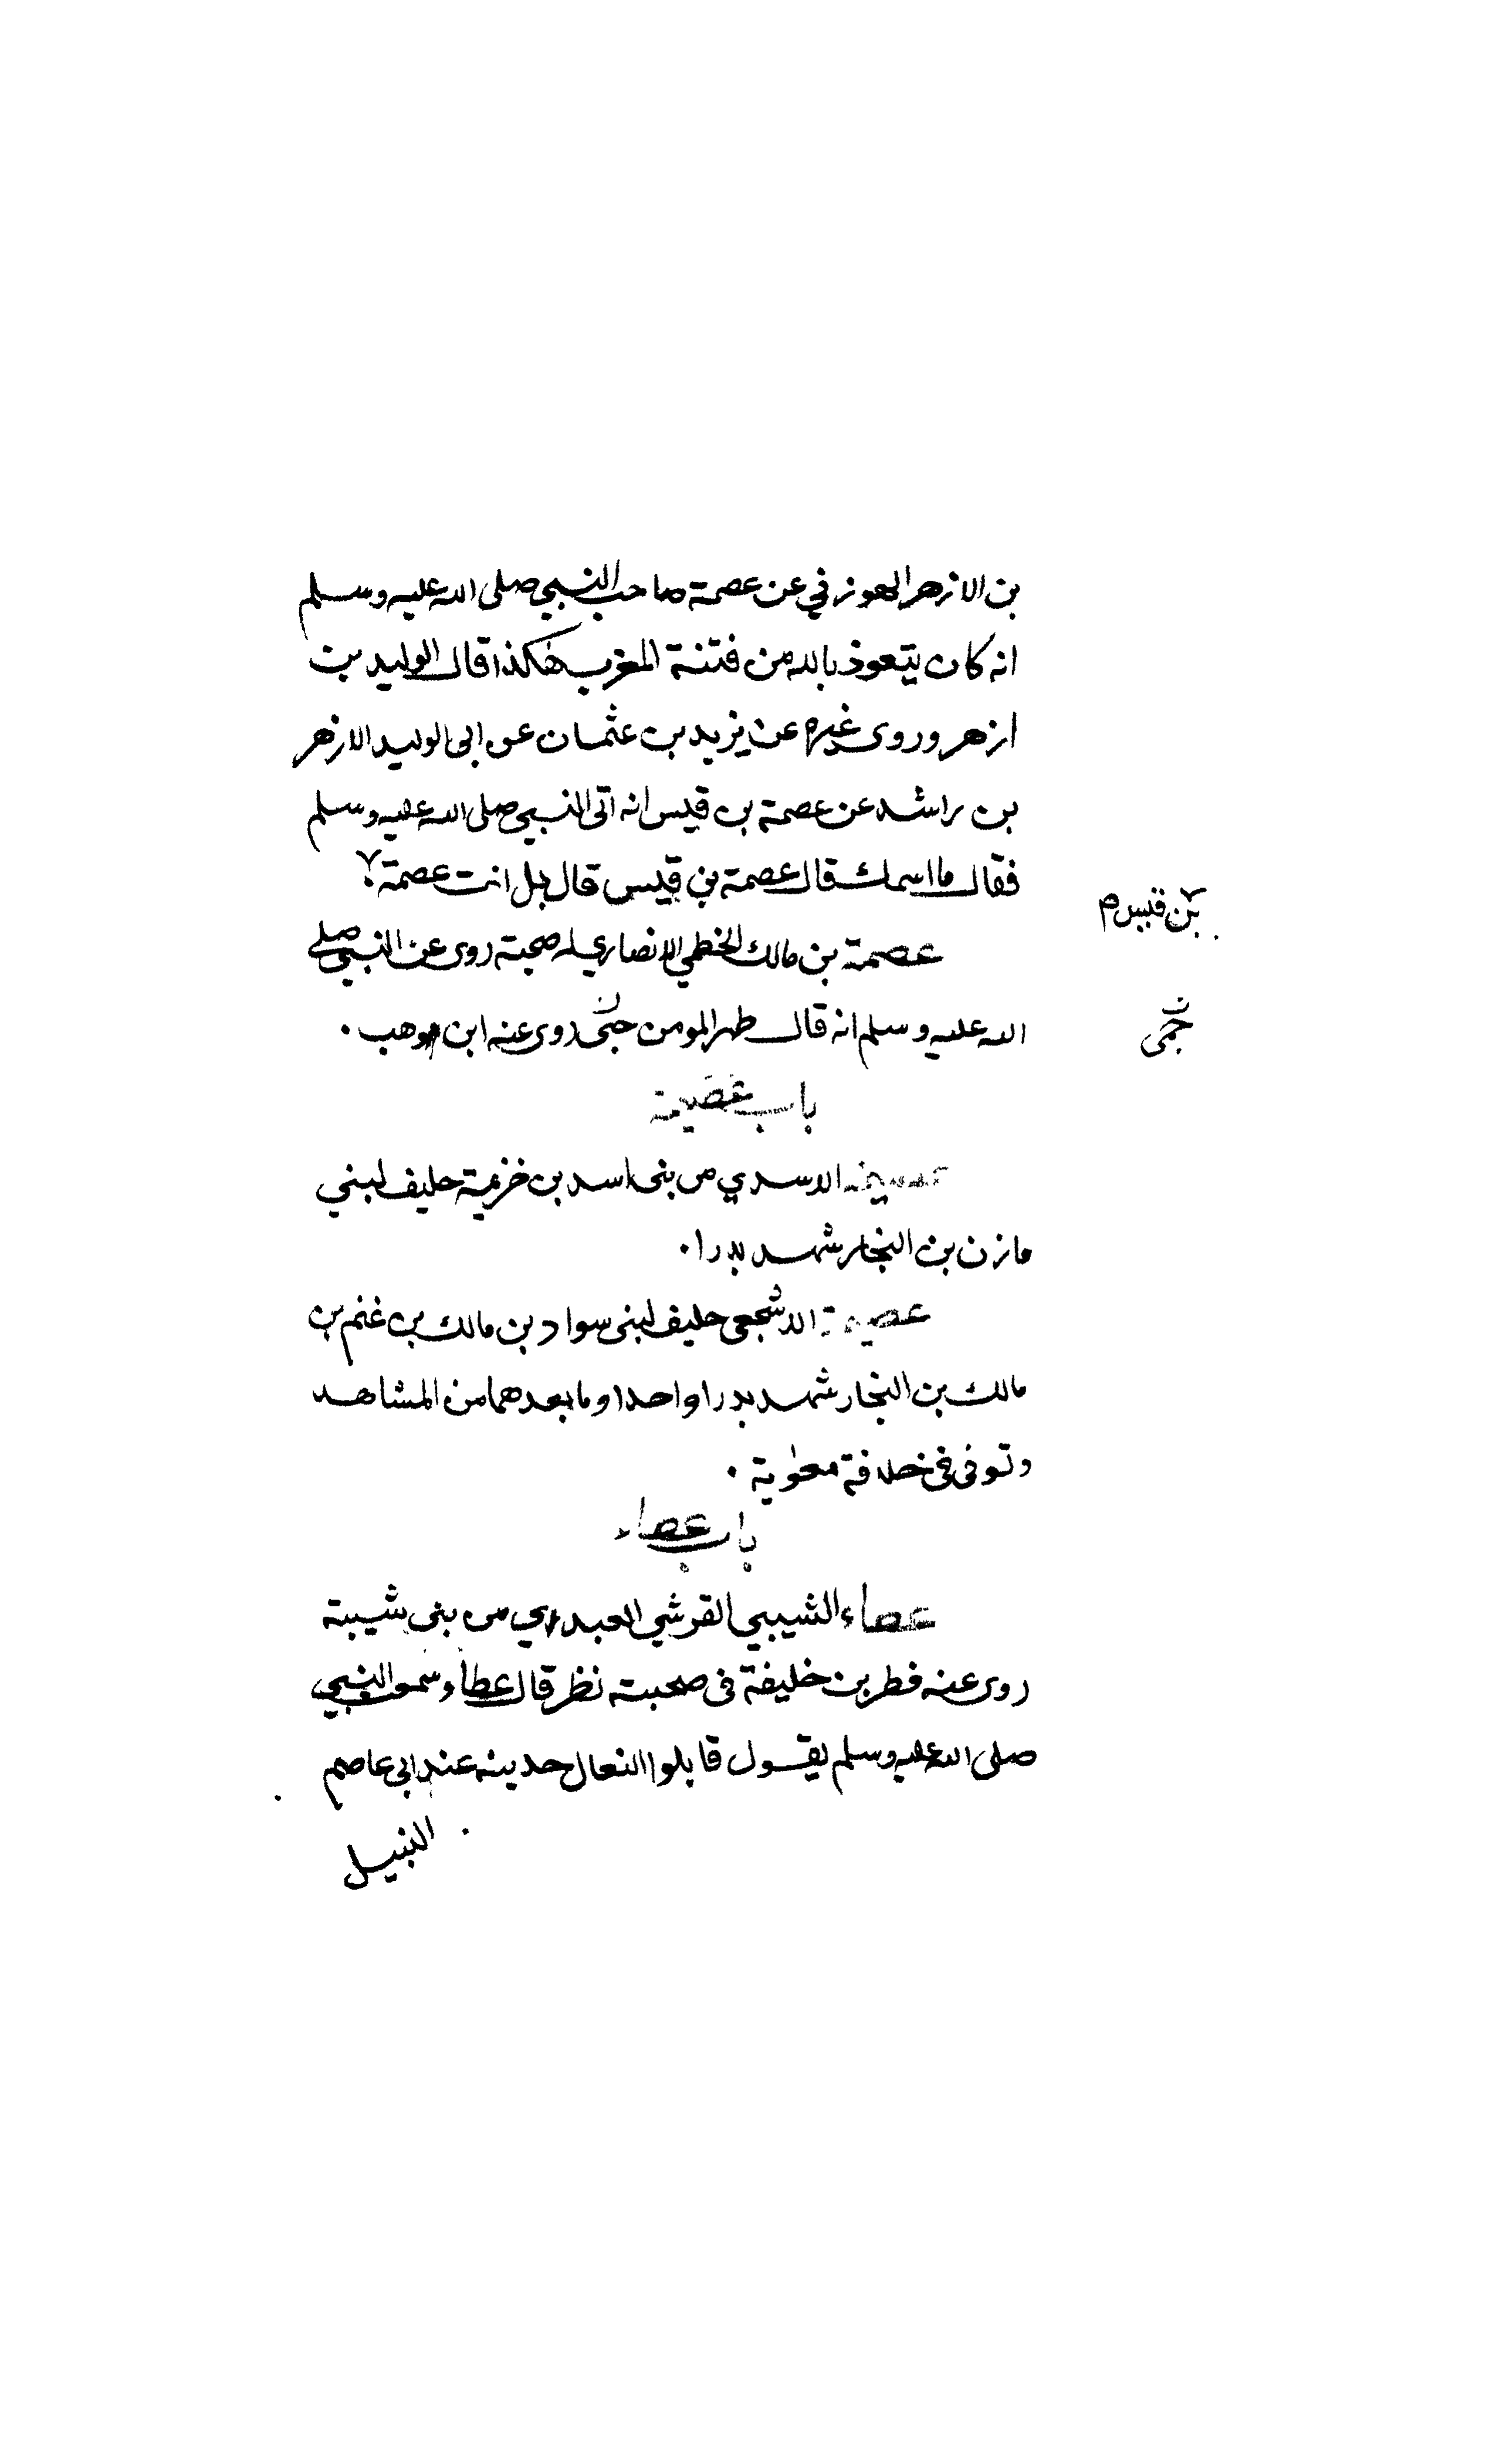 بن الازهر الهوزني عن عصمة صاحب النبي صلى الله عليه وسلم
انه كان يتعوذ بالله من فتنة المغرب هكذا قال الوليد بن
ازهر وروى غيره عن يزيد بن عثمان عن ابى الوليد الازهر
بن راشد عن عصمة بن قيس انه اتى النبي صلى الله عليه وسلم
فقال ما اسمك قال عصمة بن قيس قال بل انت عصمة
بن قيس م
عصمة بن مالك الخطمي الانصاري له صحبة روى عن النبي صلى
الله عليه وسلم انه قال ظهر المومن حمى روى عنه ابن موهب .
حمى
باب عصيمة
عصيمة الاسدي من بنى اسد بن خزيمة حليف لبني
مازن بن النجار شهد بدرا .
عصيمة الاشجعى حليف لبنى سواد بن مالك بن غنم بن
مالك بن النجار شهد بدرا واحدا وما بعدهما من المشاهد
وتوفى فى خلافة معوية .
باب عطاء
عطاء الشيبي القرشي العبدري من بنى شيبة
روى عنه فطر بن خليفة فى صحبته نظر قال عطاء وسمعت النبي
صلى الله عليه وسلم يقول قابلوا النعال حديثه عند ابى عاصم
النبيل